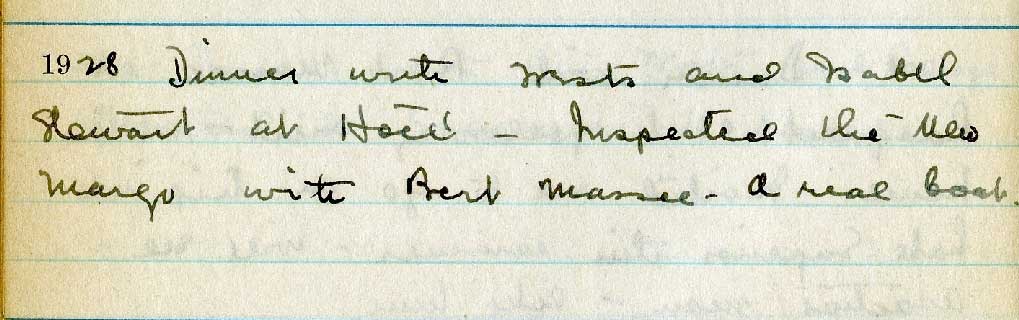 1928 Dinner with Wests and Isabel
Stewart at Hotel - Inspected the New
Margo with Bert Massee - A real boat.